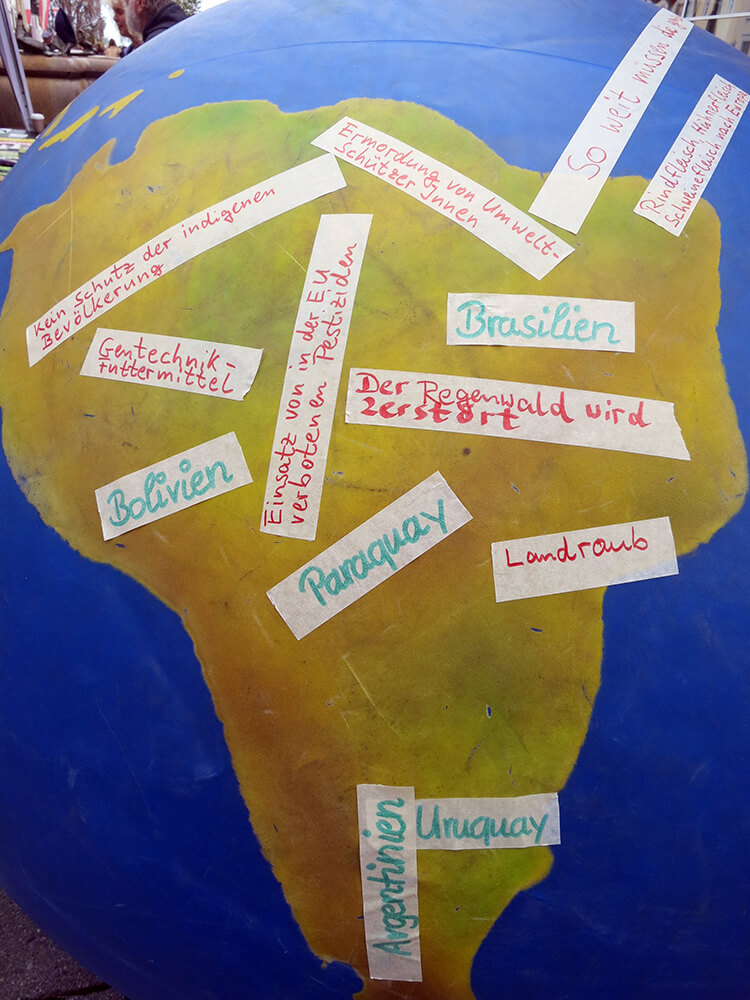 So weit müssen die
Rindfleisch, Hühnerfleisch
Schweinefleisch nach Europa
Ermordung von Umwelt-
Schützer Innen
Kein Schutz der indigenen
Bevölkerung
Einsatz von in der EU
verbotenen Pestiziden
Brasilien
Gentechnik-
futtermittel
Der Regenwald wird
zerstört
Bolivien
Paraguay
Landraub
Argentinien
Uruguay